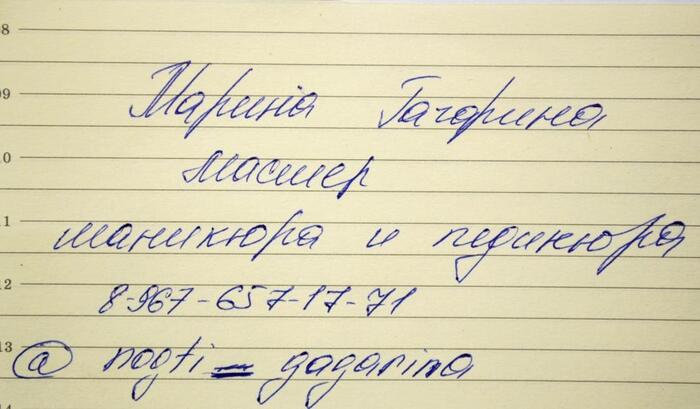 08
09
Марина Гагарина
10
мастер
11
маникюра и педикюра
12
8-967-657-17-71
13
@ nogti_gagarina